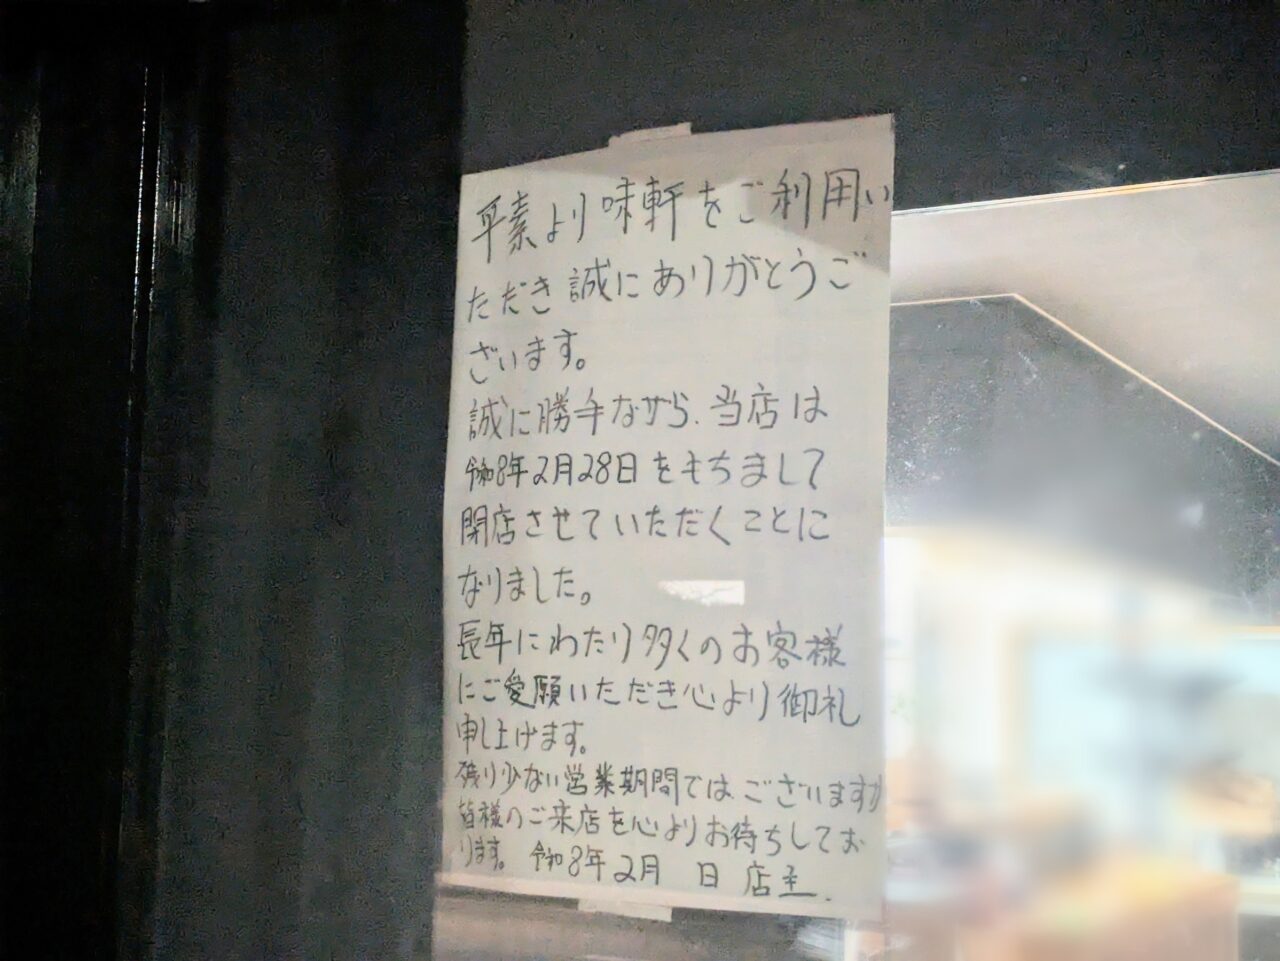 平素より味軒をご利用い
ただき誠にありがとうご
ざいます。
誠に勝手ながら、当店は
令和8年2月28日をもちまして
閉店させていただくことに
なりました。
長年にわたり多くのお客様
にご愛願いただき心より御礼
申し上げます。
残り少ない営業期間ではございますが
皆様のご来店を心よりお待ちしてお
ります。 令和8年2月 日 店主.